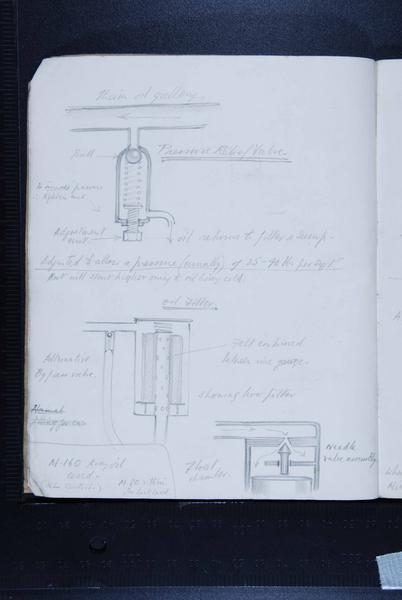 Main oil gallery.
Ball
Pressure Relief Valve.
To increase pressure
tighten nut
Adjustment
nut.
oil returns to filter & sump.
Adjusted to allow a pressure (usually) of 35-40 lbs per sq. in
But will start higher owing to oil being cold.
Oil Filter.
Alternative
By pass valve.
Felt contained
between wire gauze.
showing how filter
M-160
oil
Float
chamber.
Needle
valve assembly